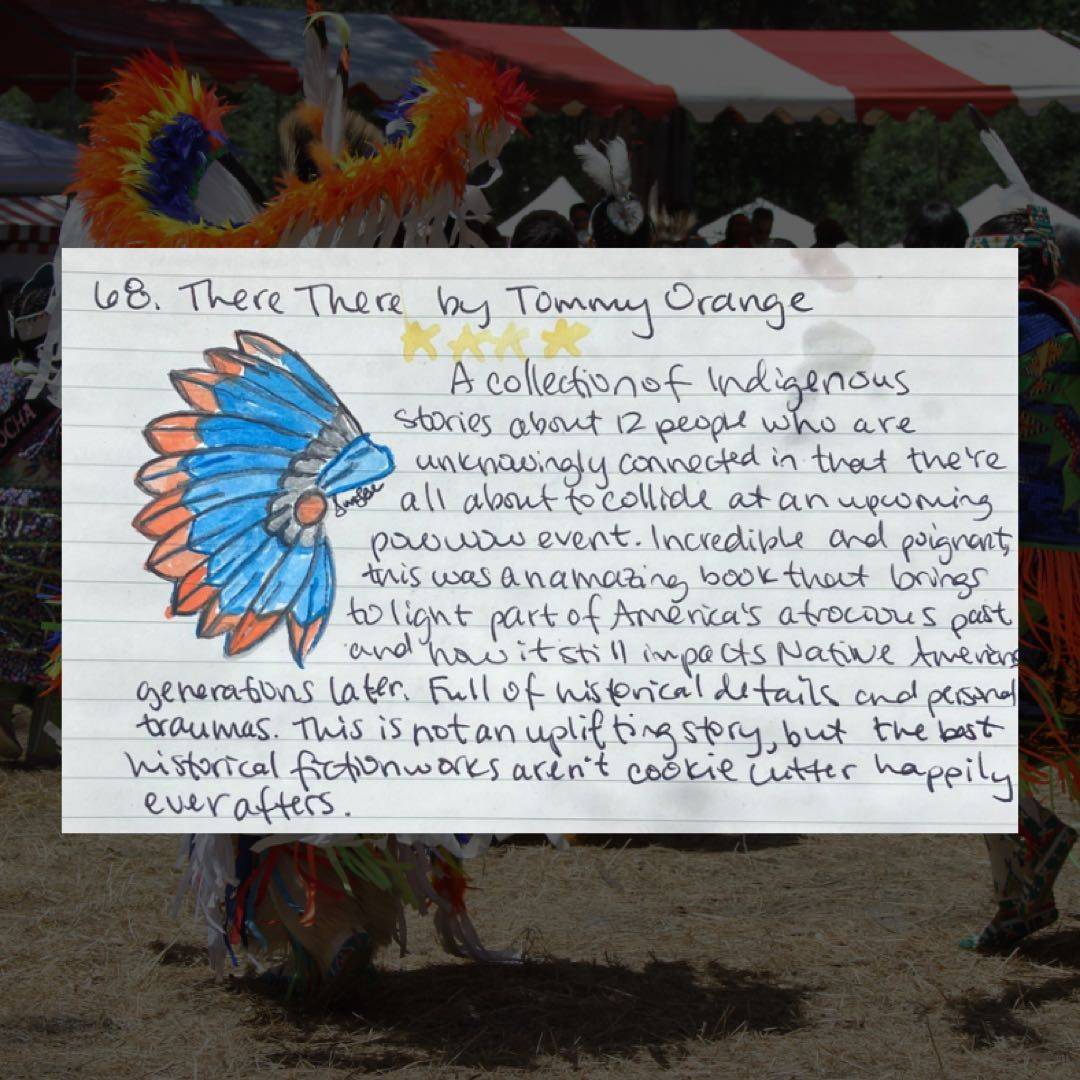 68. There There by Tommy Orange
A collection of Indigenous
stories about 12 people who are
unknowingly connected in that they're
all about to collide at an upcoming
powwow event. Incredible and poignant,
this was an amazing book that brings
to light part of America's atrocious past
and how it still impacts Native Americans
generations later. Full of historical details and personal
traumas. This is not an uplifting story, but the best
historical fiction works aren't cookie cutter happily
ever afters.
OCHA